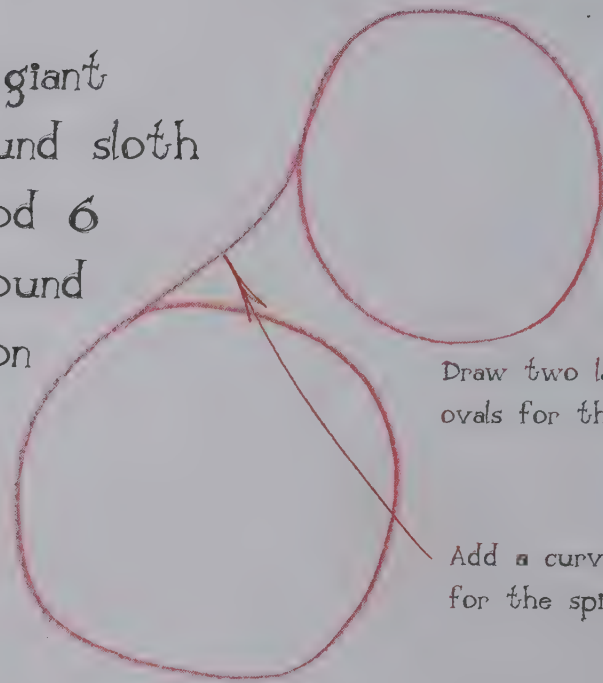 giant
und sloth
od 6
ound
on
Draw two la
ovals for th
Add a curv
for the spi